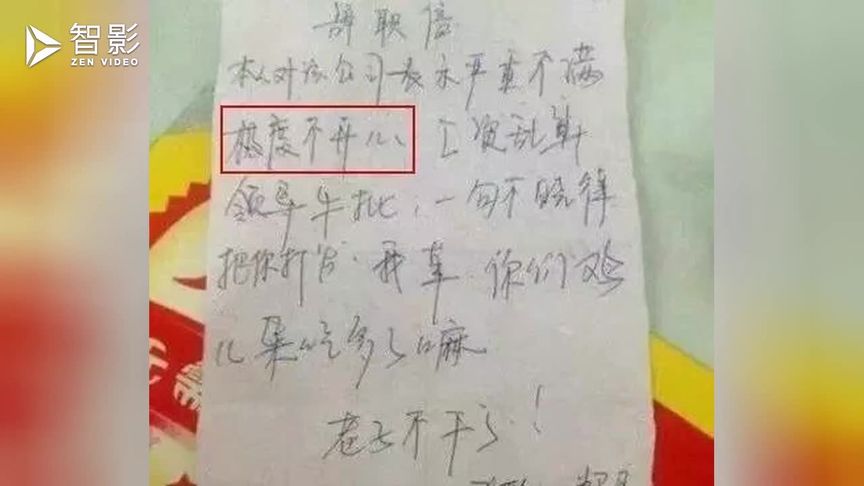 智影
ZEN VIDEO
辞职信
本人对该公司表示严重不满
极度不开心、工资乱算
领导牛批,一句不晓得
把你打发.我草.你们鸡
儿果吃多了嘛
老子不干了!